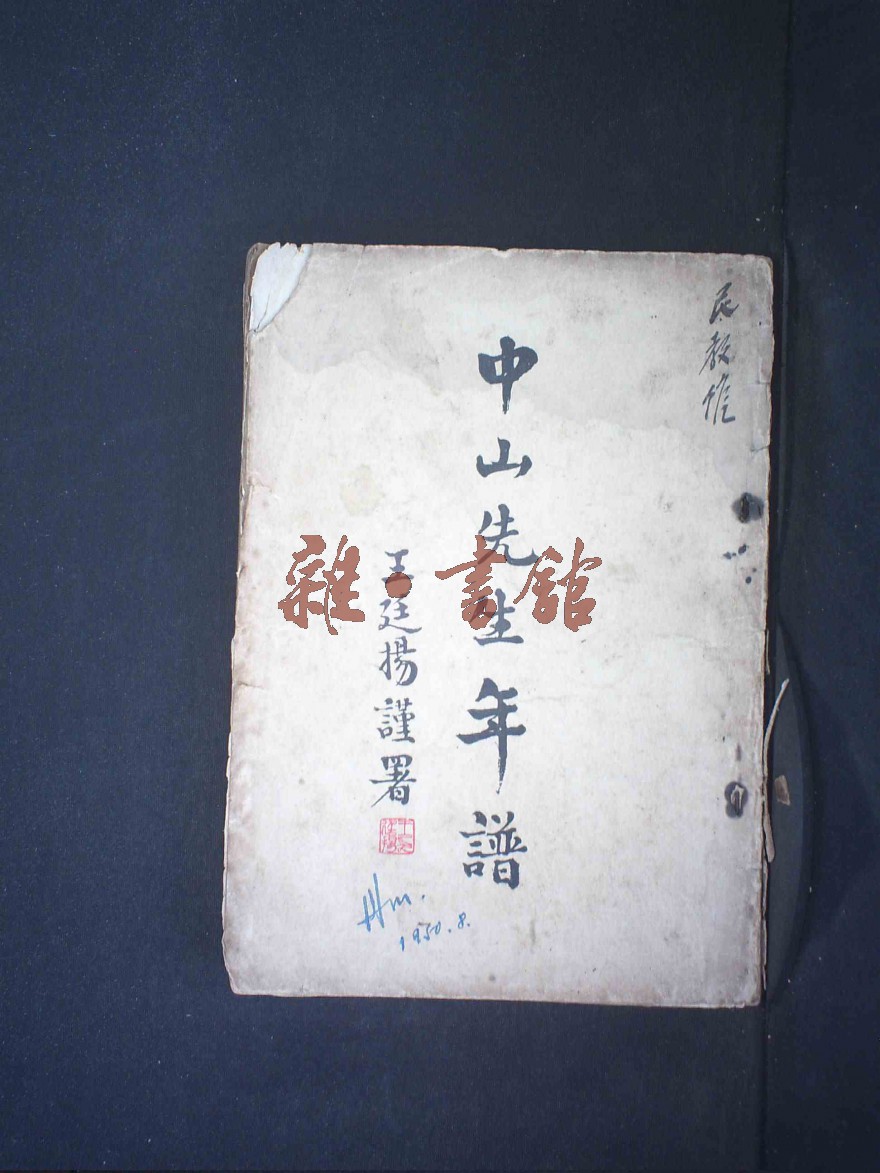 民教館
中山先生年譜
王廷揚謹署
雜·書館
Hm.
1950.8.